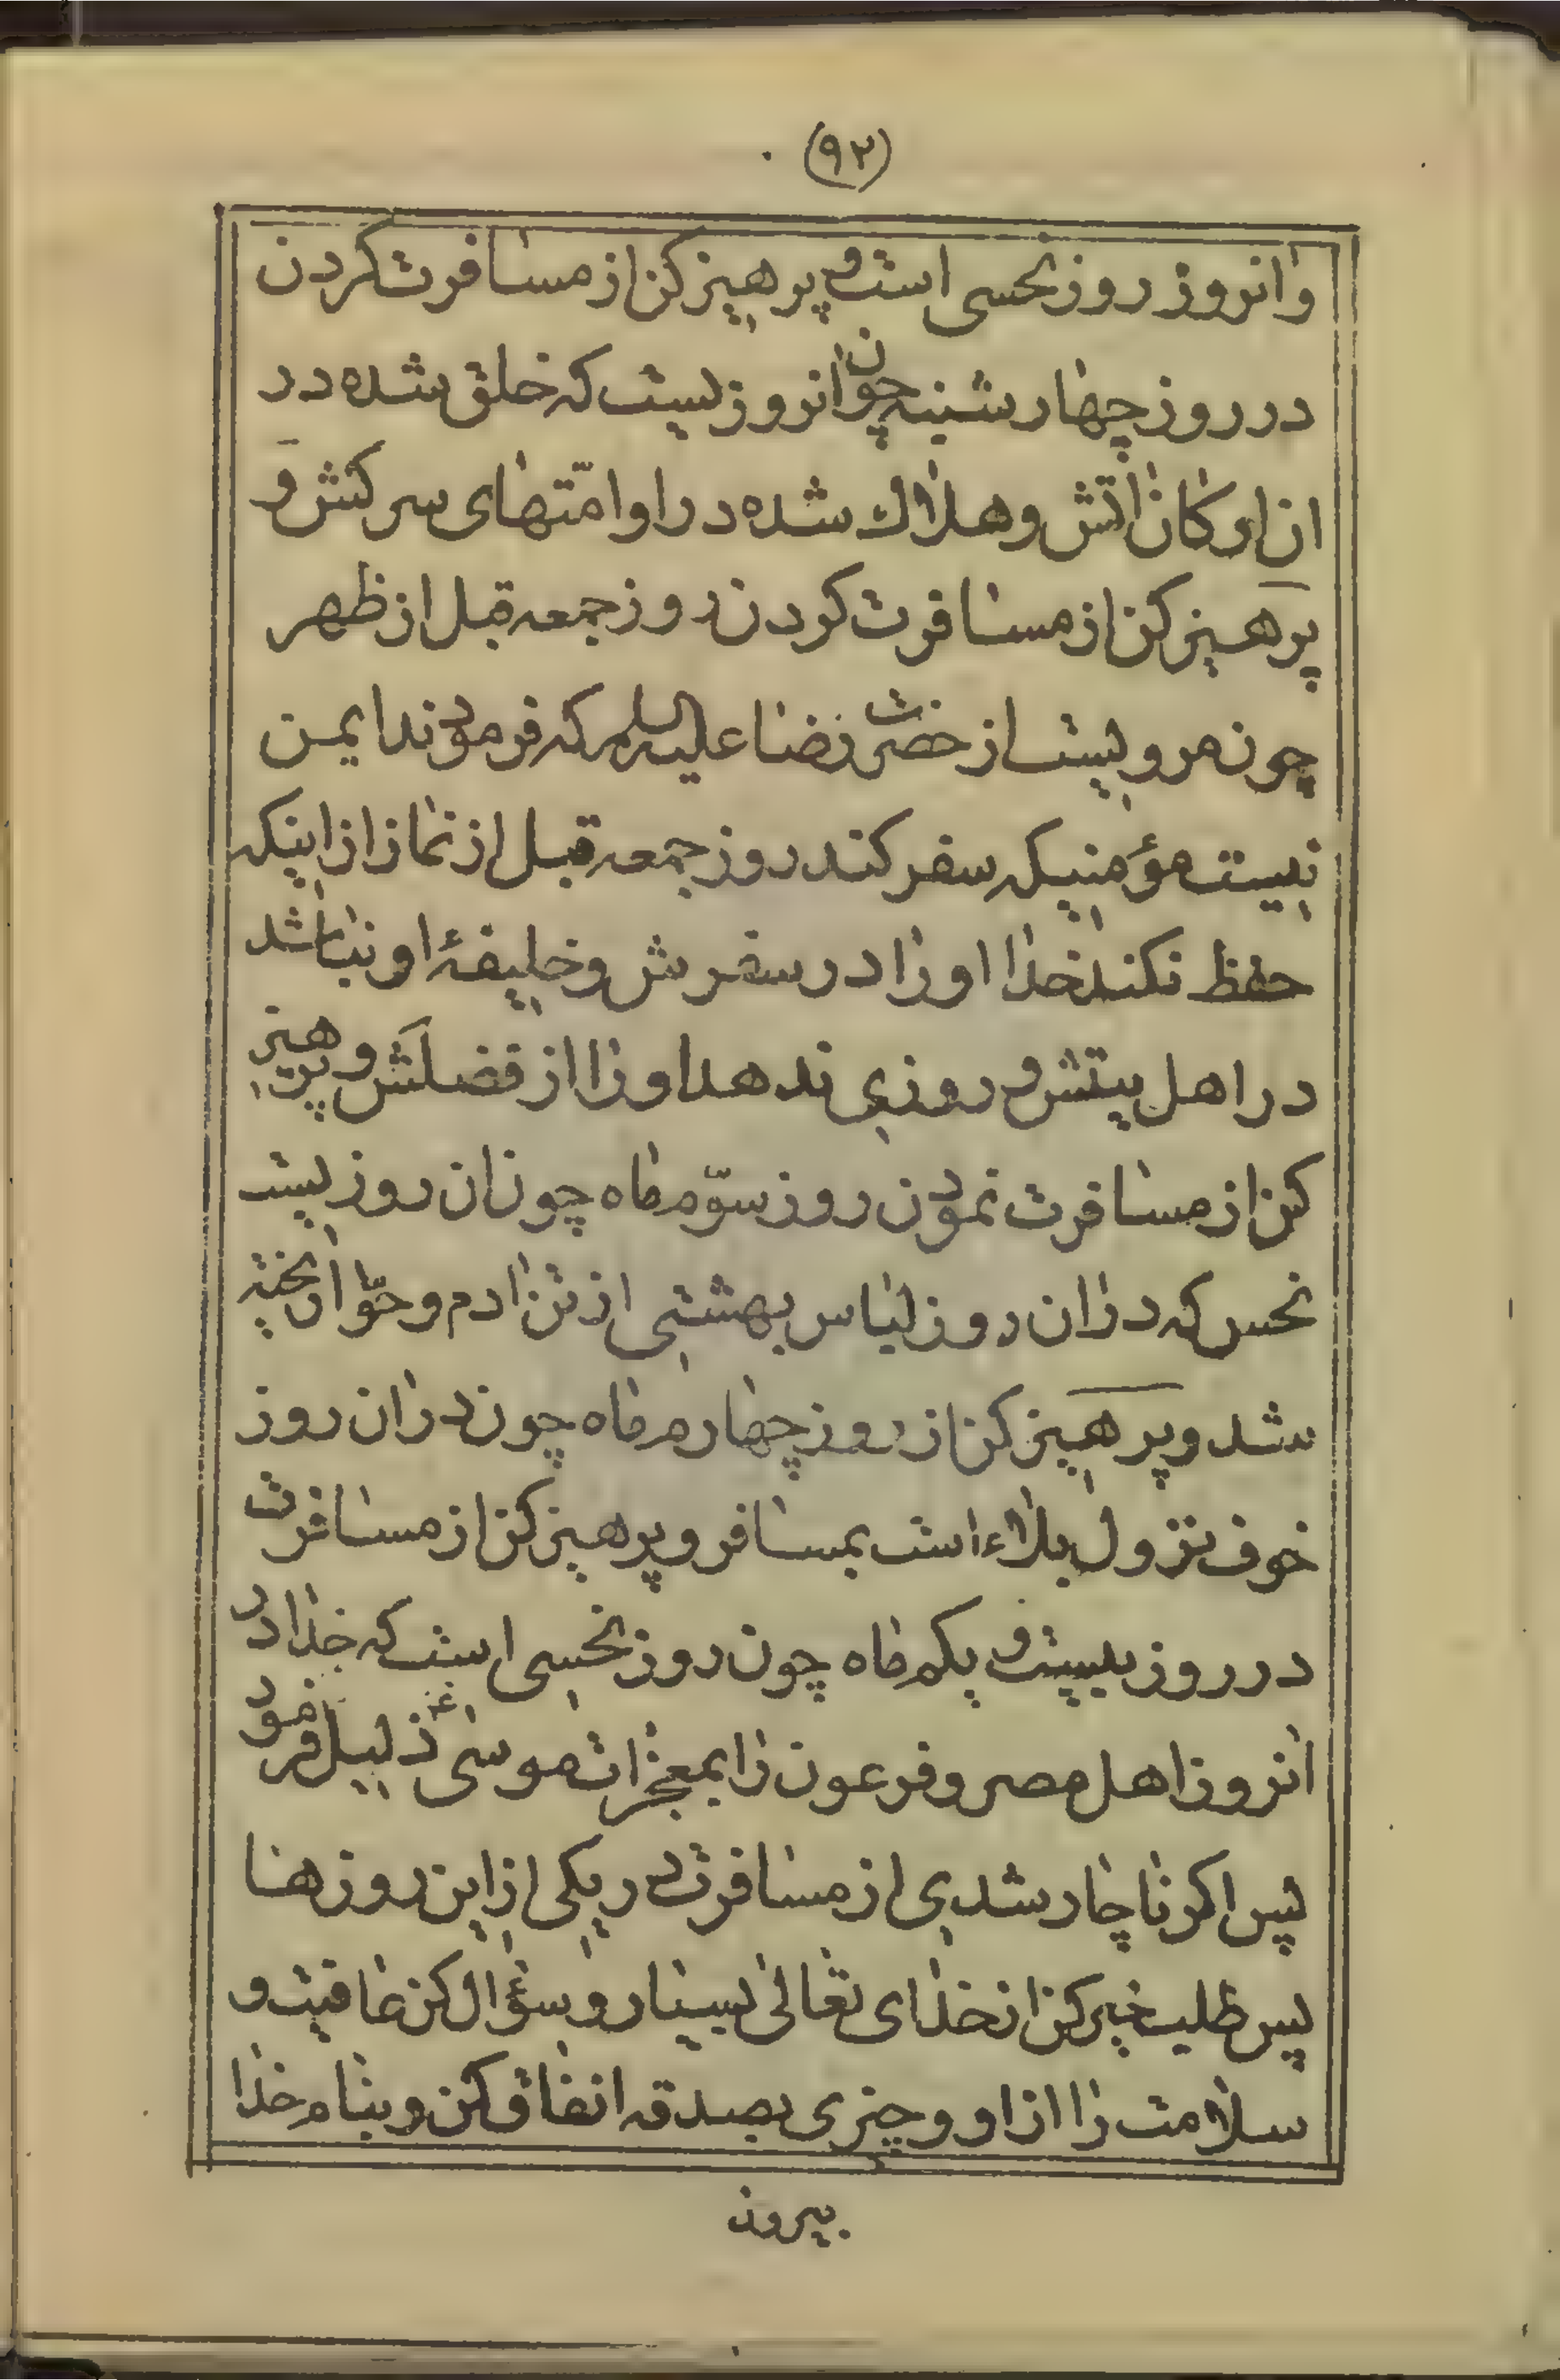 (۹۲)
وانروز روز نحسی است و پرهیز کن از مسافرت کردن
در روز چهارشنبه چون انروزیست که خلق شده در
ان ارکان اتش و هلاك شده در او امّتهای سرکش و
پرهیز کن از مسافرت کردن روز جمعه قبل از ظهر
چون مرویست از حضرت رضا علیه السلم که فرمودند ایمن
نیست مؤمنیکه سفر کند روز جمعه قبل از نماز از اینکه
حفظ نکند خدا او را در سفرش و خلیفهٔ او نباشد
در اهل بیتش و روزی ندهد او را از فضلش و پرهیز
کن از مسافرت نمودن روز سوّم ماه چون ان روزیست
نحس که در ان روز لباس بهشتی از تن ادم و حوّا ریخته
شد و پرهیز کن از روز چهارم ماه چون در ان روز
خوف نزول بلاء است بمسافر و پرهیز کن از مسافرت
در روز بیست و یکم ماه چون روز نحسی است که خدا در
انروز اهل مصر و فرعون را بمعجزات موسی ع ذلیل فرمود
پس اگر ناچار شدی از مسافرت در یکی از این روزها
پس طلب خیر کن از خدای تعالی بسیار و سؤال کن عافیت و
سلامت را از او و چیزی بصدقه انفاق کن و بنام خدا
بیرون